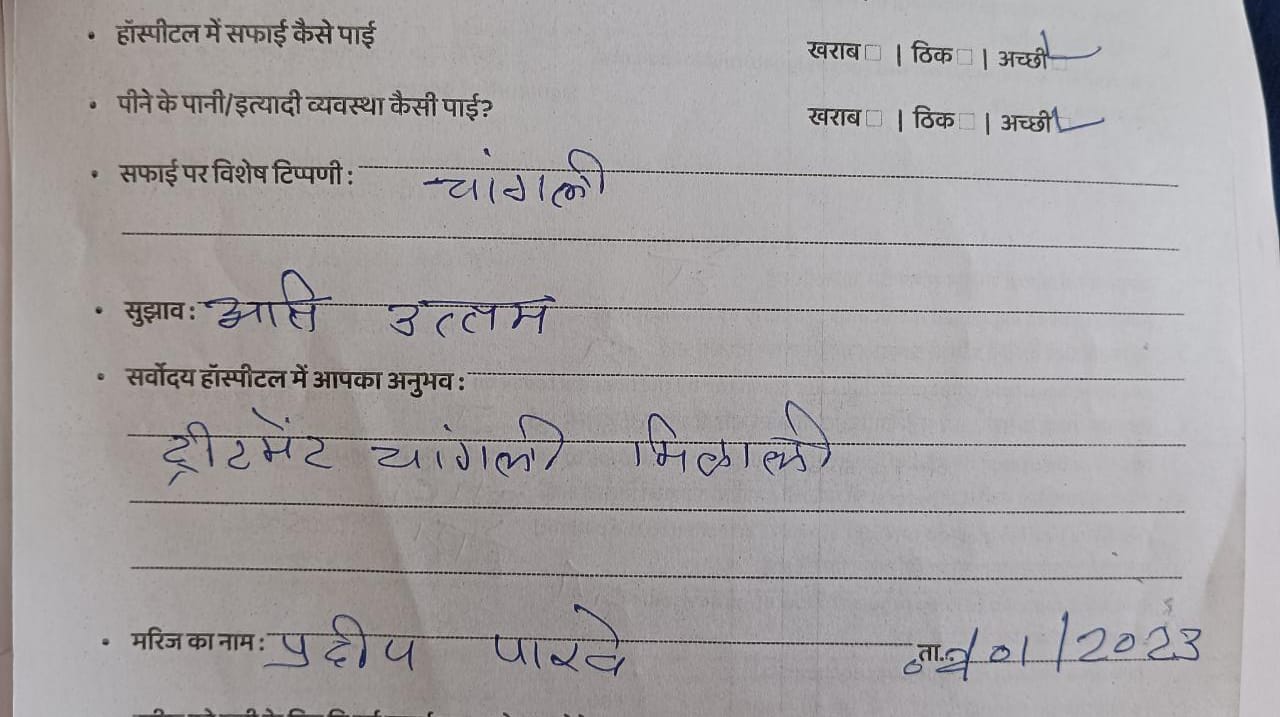 • हॉस्पीटल में सफाई कैसे पाई खराब□ | ठिक□ | अच्छी
• पीने के पानी/इत्यादी व्यवस्था कैसी पाई? खराब□ | ठिक□ | अच्छी
• सफाई पर विशेष टिप्पणी : चांगली
• सुझाव : अति उत्तम
• सर्वोदय हॉस्पीटल में आपका अनुभव :
ट्रीटमेंट चांगली मिळाली
• मरिज का नाम : प्रदीप पारवे ता. /01/2023